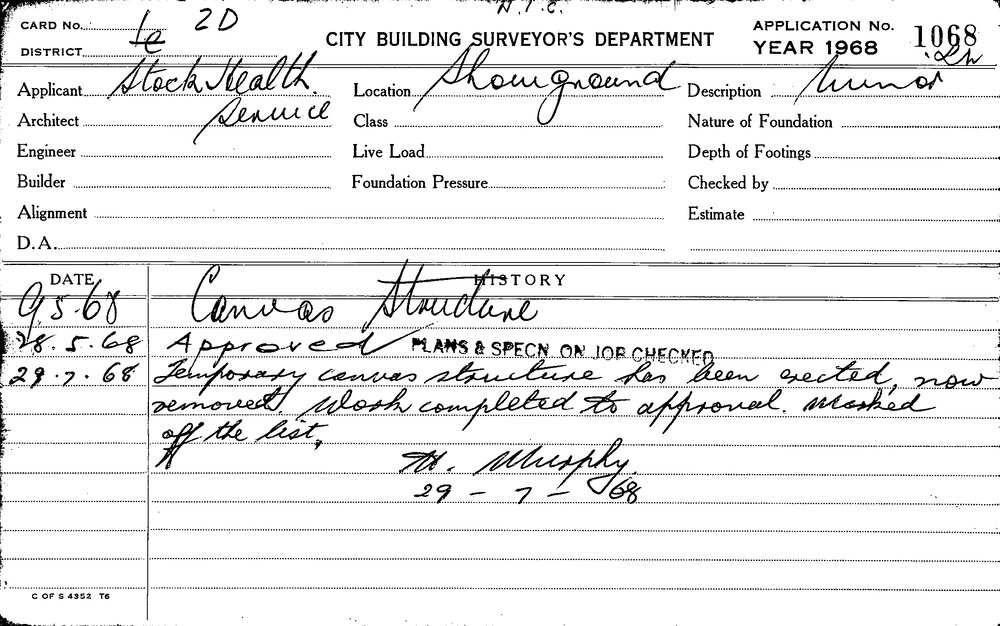 N.I.C.
CARD No. 1e 2D
DISTRICT
CITY BUILDING SURVEYOR'S DEPARTMENT
APPLICATION No. 1068
YEAR 1968
Applicant Stock Health Location Showground Description Minor
Architect Service Class Nature of Foundation
Engineer Live Load Depth of Footings
Builder Foundation Pressure Checked by
Alignment Estimate
D.A.
DATE HISTORY
9.5.68 Canvas Structure
28.5.68 Approved PLANS & SPECN ON JOB CHECKED
29.7.68 Temporary canvas structure has been erected, now
removed. Work completed to approval. Marked
off the list.
M. Murphy.
29-7-68
C OF S 4352 T6